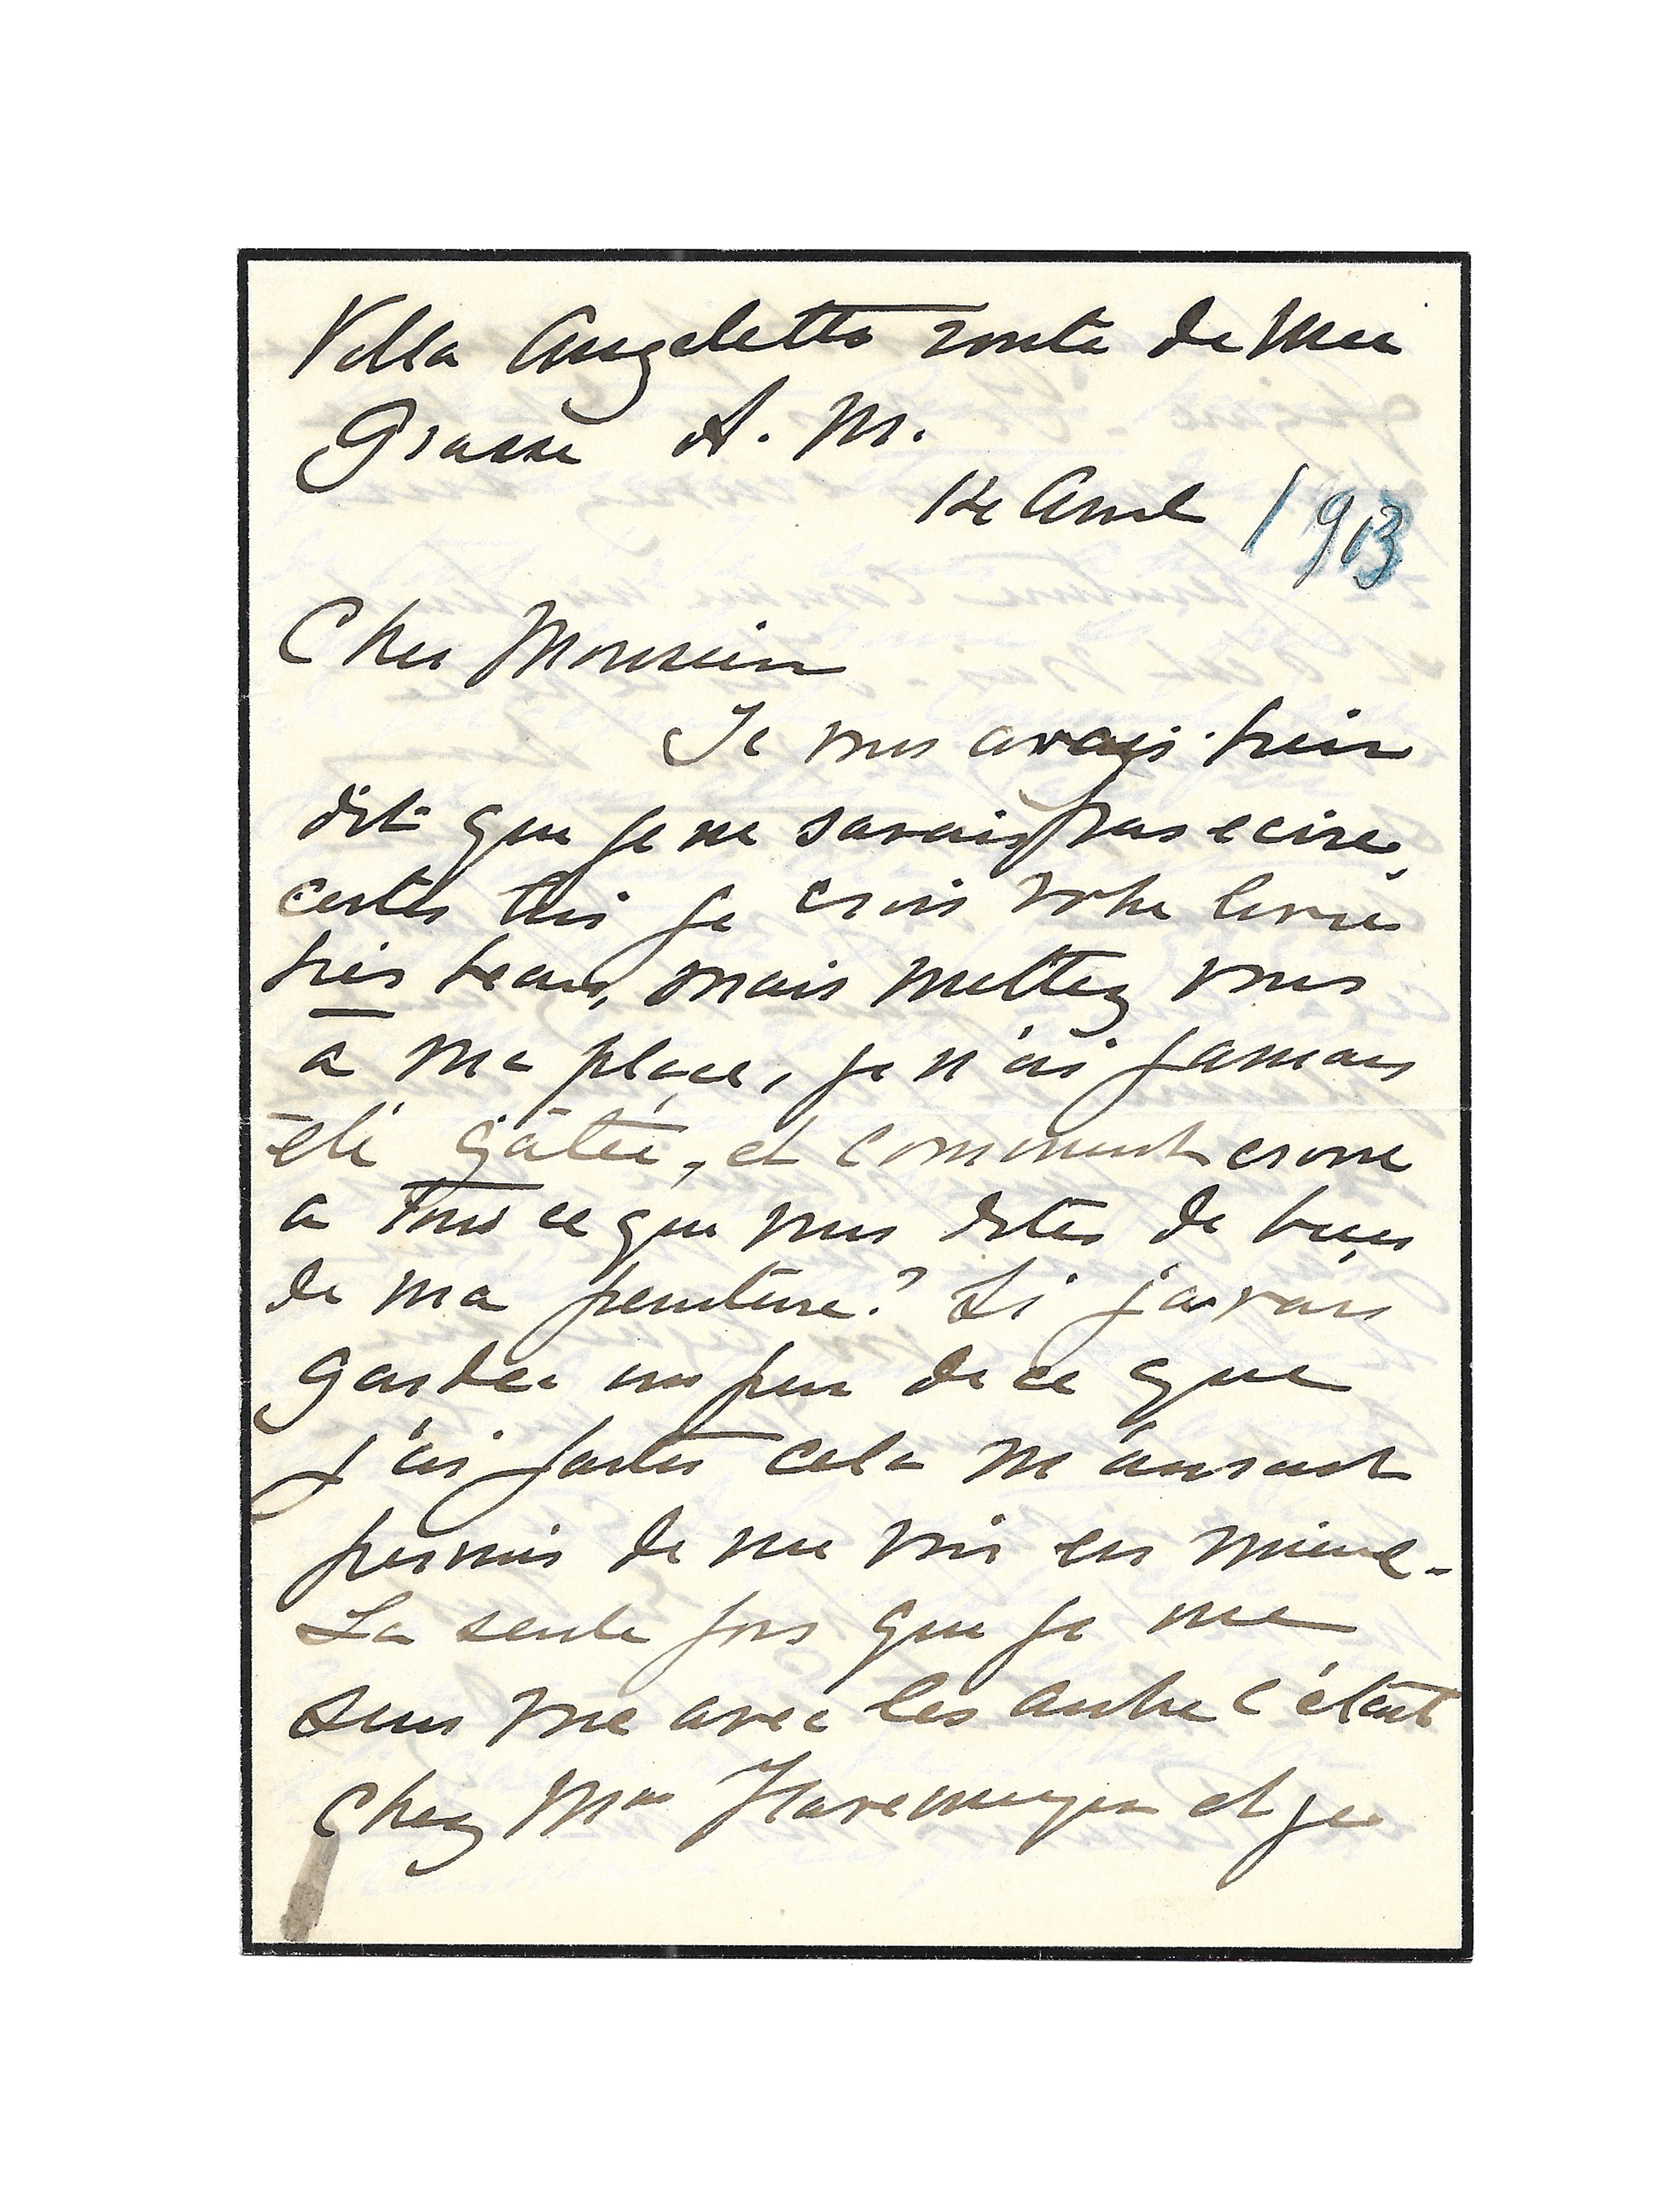 Villa Angeletto route de Nice
Grasse A. M.
12e Avril 1913
Cher Monsieur
Je vous avais bien
dit que je ne savais pas ecire,
certes Oui je crois votre livre
très beau, mais mettez vous
à ma place, je n'ai jamais
été gâtée, et comment croire
a tous ce que vous dites de bien
de ma peinture? Si j'avais
garder un peu de ce que
j'ai faites cela m'aurait
permis de me voir en mieux.
La seule fois que je me
suis vue avec les autre c'était
chez Mme Havemeyer et je